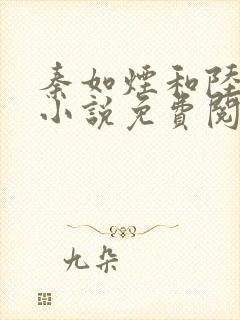 秦如煙和陸
小說免費閱
九朵